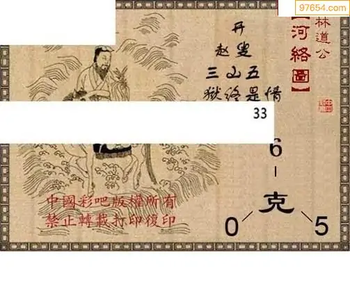 97654.com
林道公
【河絡圖】
丹
赵叟
三山五
獄終是情
33
6
克
0
5
中國彩吧版權所有
禁止轉載打印復印